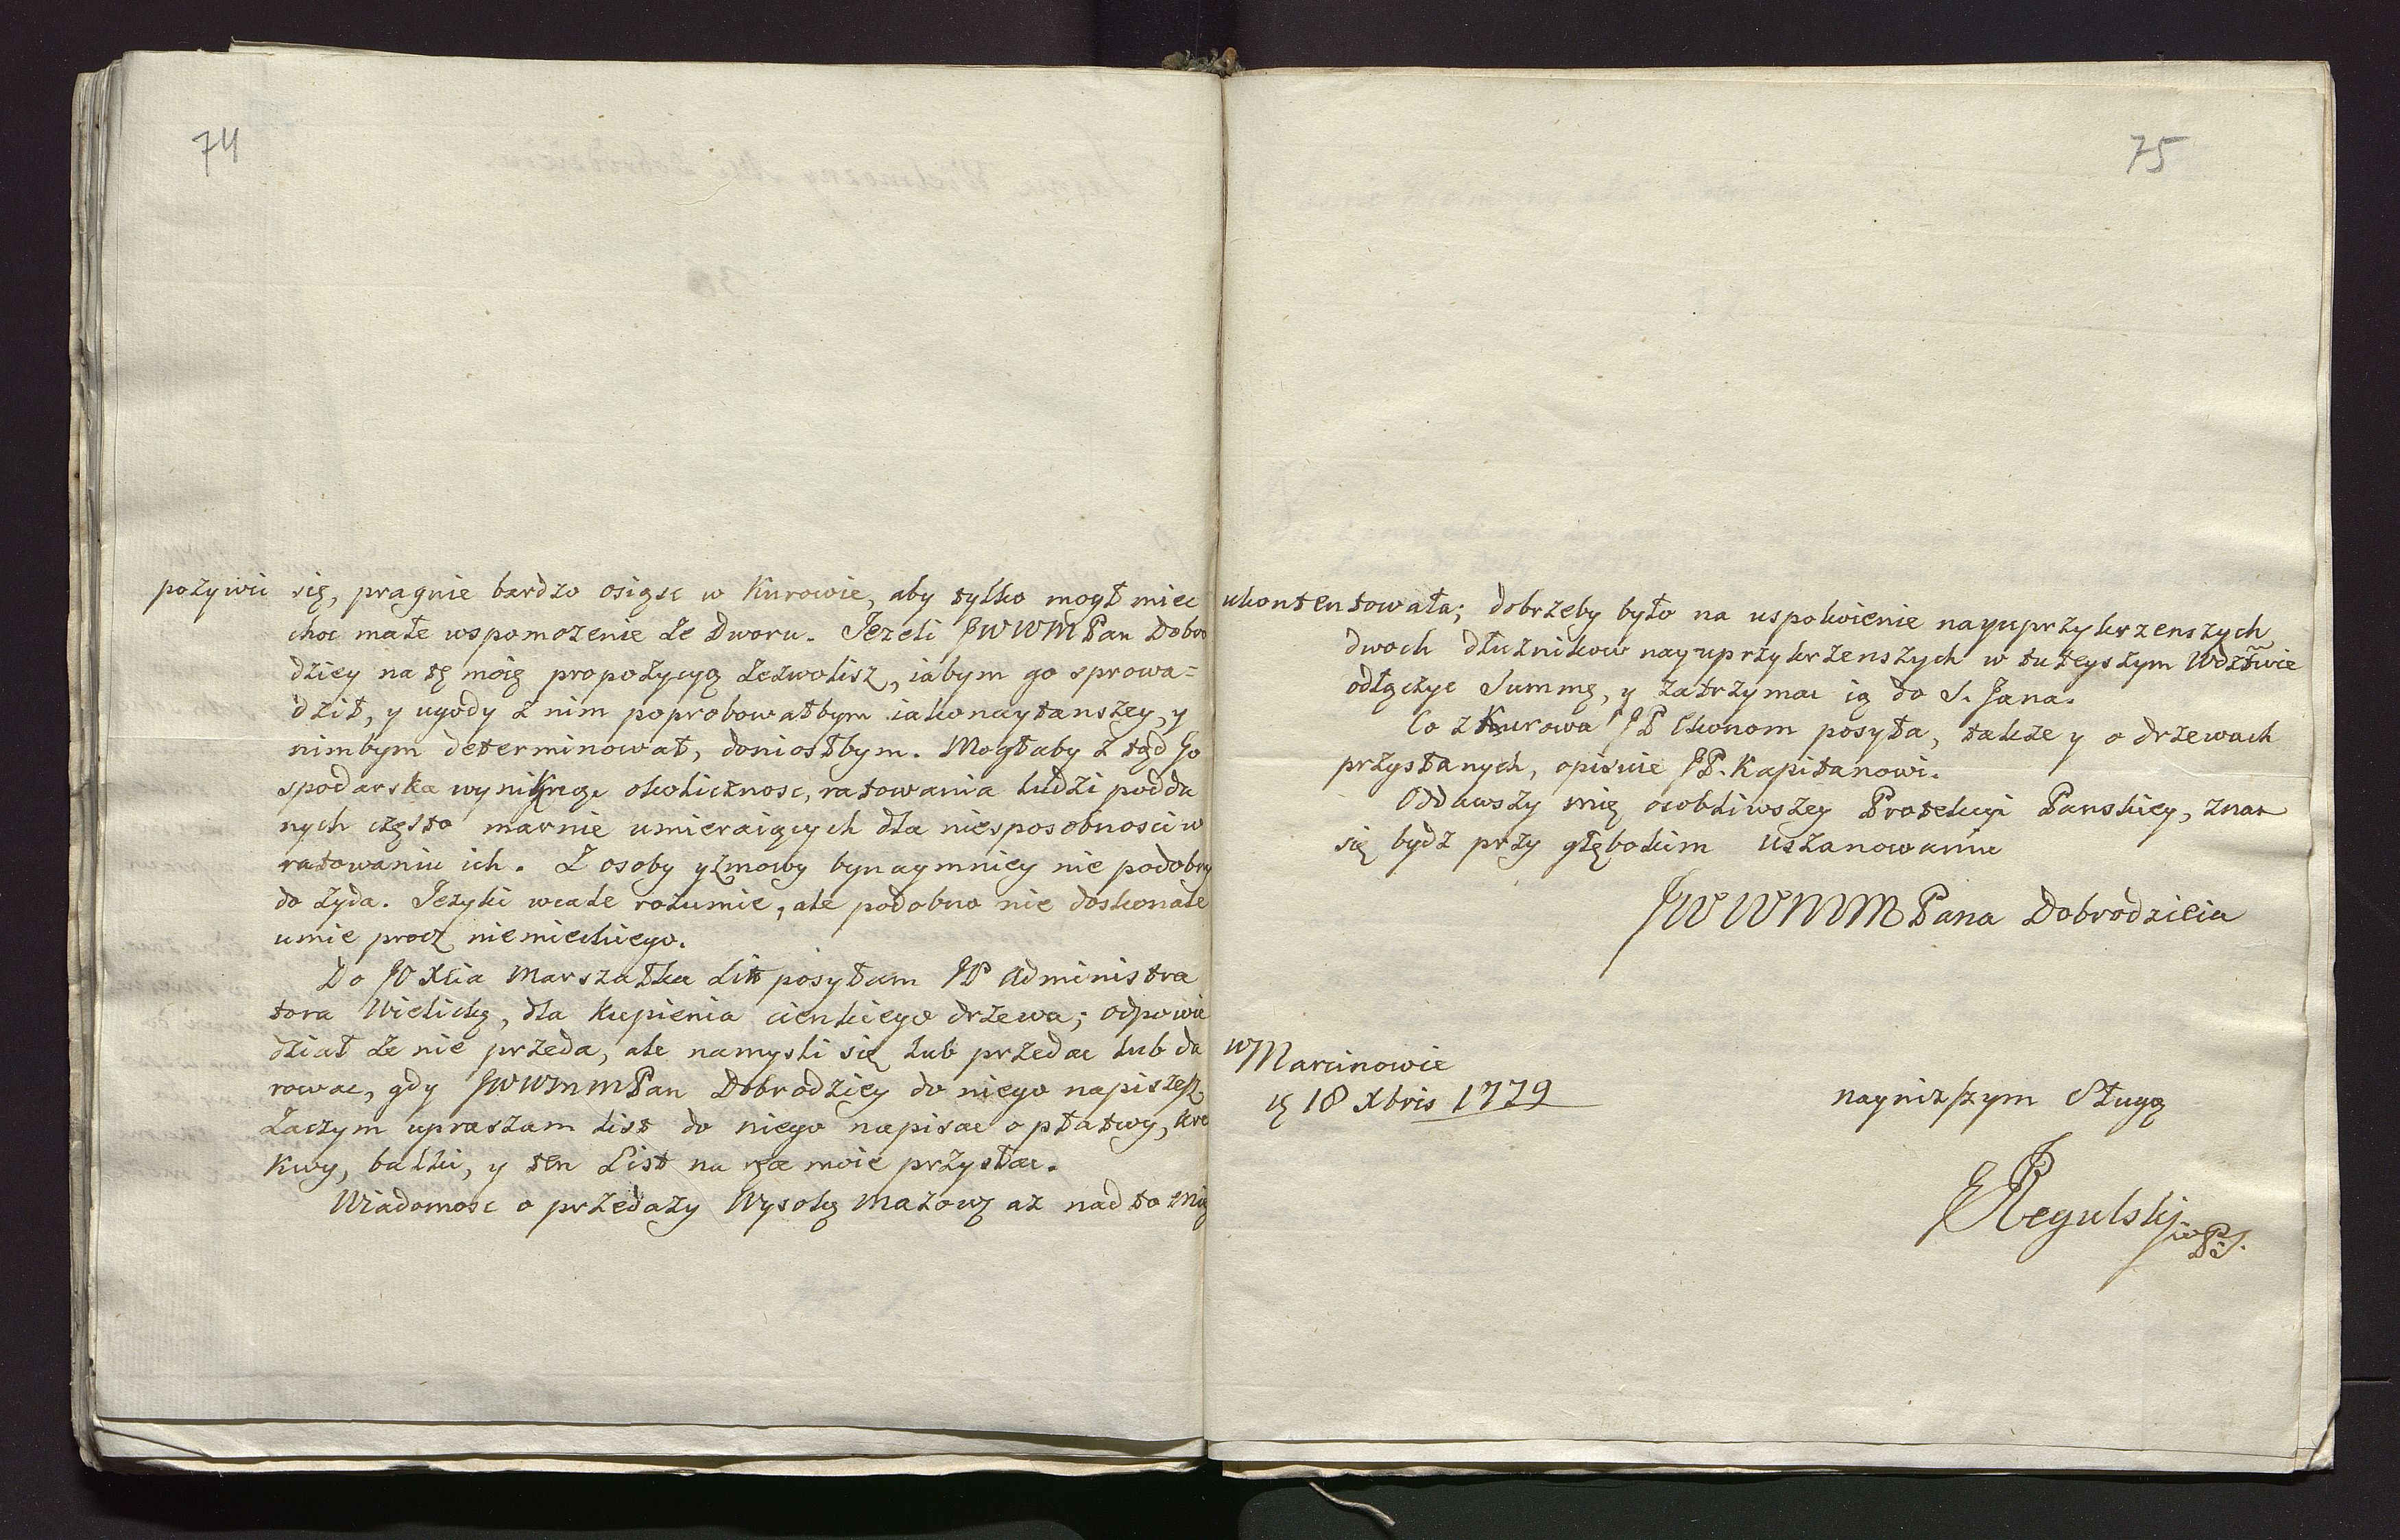 74
pozywić się, pragnie bardzo osiąsc w Kurowie, aby tylko mogł miec
choc małe wspomozenie ze Dworu. Jezeli JWWM Pan Dobro
dziey na tę moię propozycyą zezwolisz, iabym go sprowa=
dził, y ugody z nim poprobowałbym iako naytanszey, y
nimbym determinował, doniosłbym. Mogłaby z tąd Go
spodarska wyniknąc okolicznosc, ratowania ludzi podda
nych często marnie umieraiących dla niesposobnosci w
ratowaniu ich. Z osoby y zmowy bynaymniey nie podobny
do zyda. Jezyki wcale rozumie, ale podobno nie doskonale
umie procz niemieckiego.
Do JO Xcia Marszałka Litt posyłam JP Administra
tora Wielicką, dla kupienia cienkiego drzewa; odpowie
dział ze nie przeda, ale namysli się lub przedac lub da
rowac, gdy JWWMM Pan Dobrodziey do niego napiszesz
Zaczym upraszam list do niego napisac o płatwy, kro
kwy, balki, y ten List na ręce moie przysłac.
Wiadomosc o przedazy Wysoką Mazow: az nadto mię
75
ukontentowała; dobrzeby było na uspokoienie nayuprzykrzenszych
dwoch dłuznikow nayuprzykrzenszych w tuteyszym Wdztwie
odłączyc Summę, y zatrzymac ią do S. Jana.
Co z Kurowa JP Ekonom posyła, takze y o drzewach
przysłanych, opisuie JP. Kapitanowi.
Oddawszy mię osobliwszey Protekcyi Panskiey, znac
się bydz przy głębokim uszanowaniu
JWWMM Pana Dobrodzieia
w Marcinowie
18 Xbris 1779
naynizszym Sługą
Regulskj